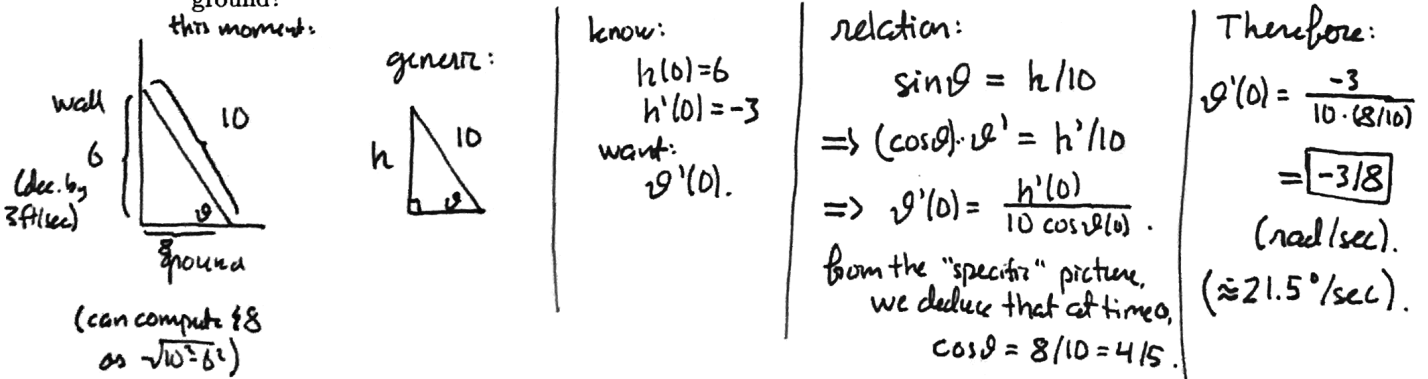 ground?
this moment:
wall
10
6
(dec. by
3ft/sec)
ϑ
8
ground
(can compute 8
as √10²-6²)
generic:
h
10
ϑ
know:
h(0)=6
h'(0)=-3
want:
ϑ'(0).
relation:
sinϑ = h/10
=> (cosϑ)·ϑ' = h'/10
=> ϑ'(0) = h'(0)/10 cosϑ(0) .
from the "specific" picture,
we deduce that at time 0,
cosϑ = 8/10 = 4/5 .
Therefore:
ϑ'(0) = -3/10·(8/10)
= -3/8
(rad/sec).
(≈21.5°/sec).